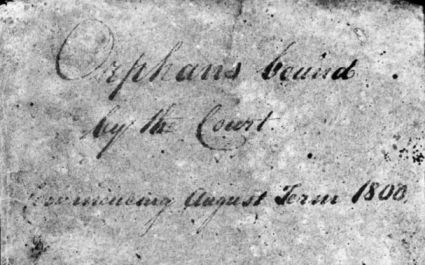 Orphans bound
by the Court
Commencing August Term 1800